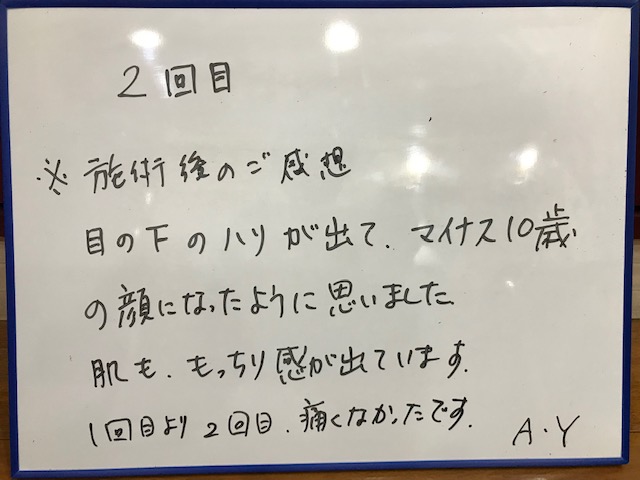 2回目
※ 施術後のご感想
目の下のハリが出て、マイナス10歳
の顔になったように思いました
肌も、もっちり感が出ています。
1回目より2回目、痛くなかったです。
A.Y